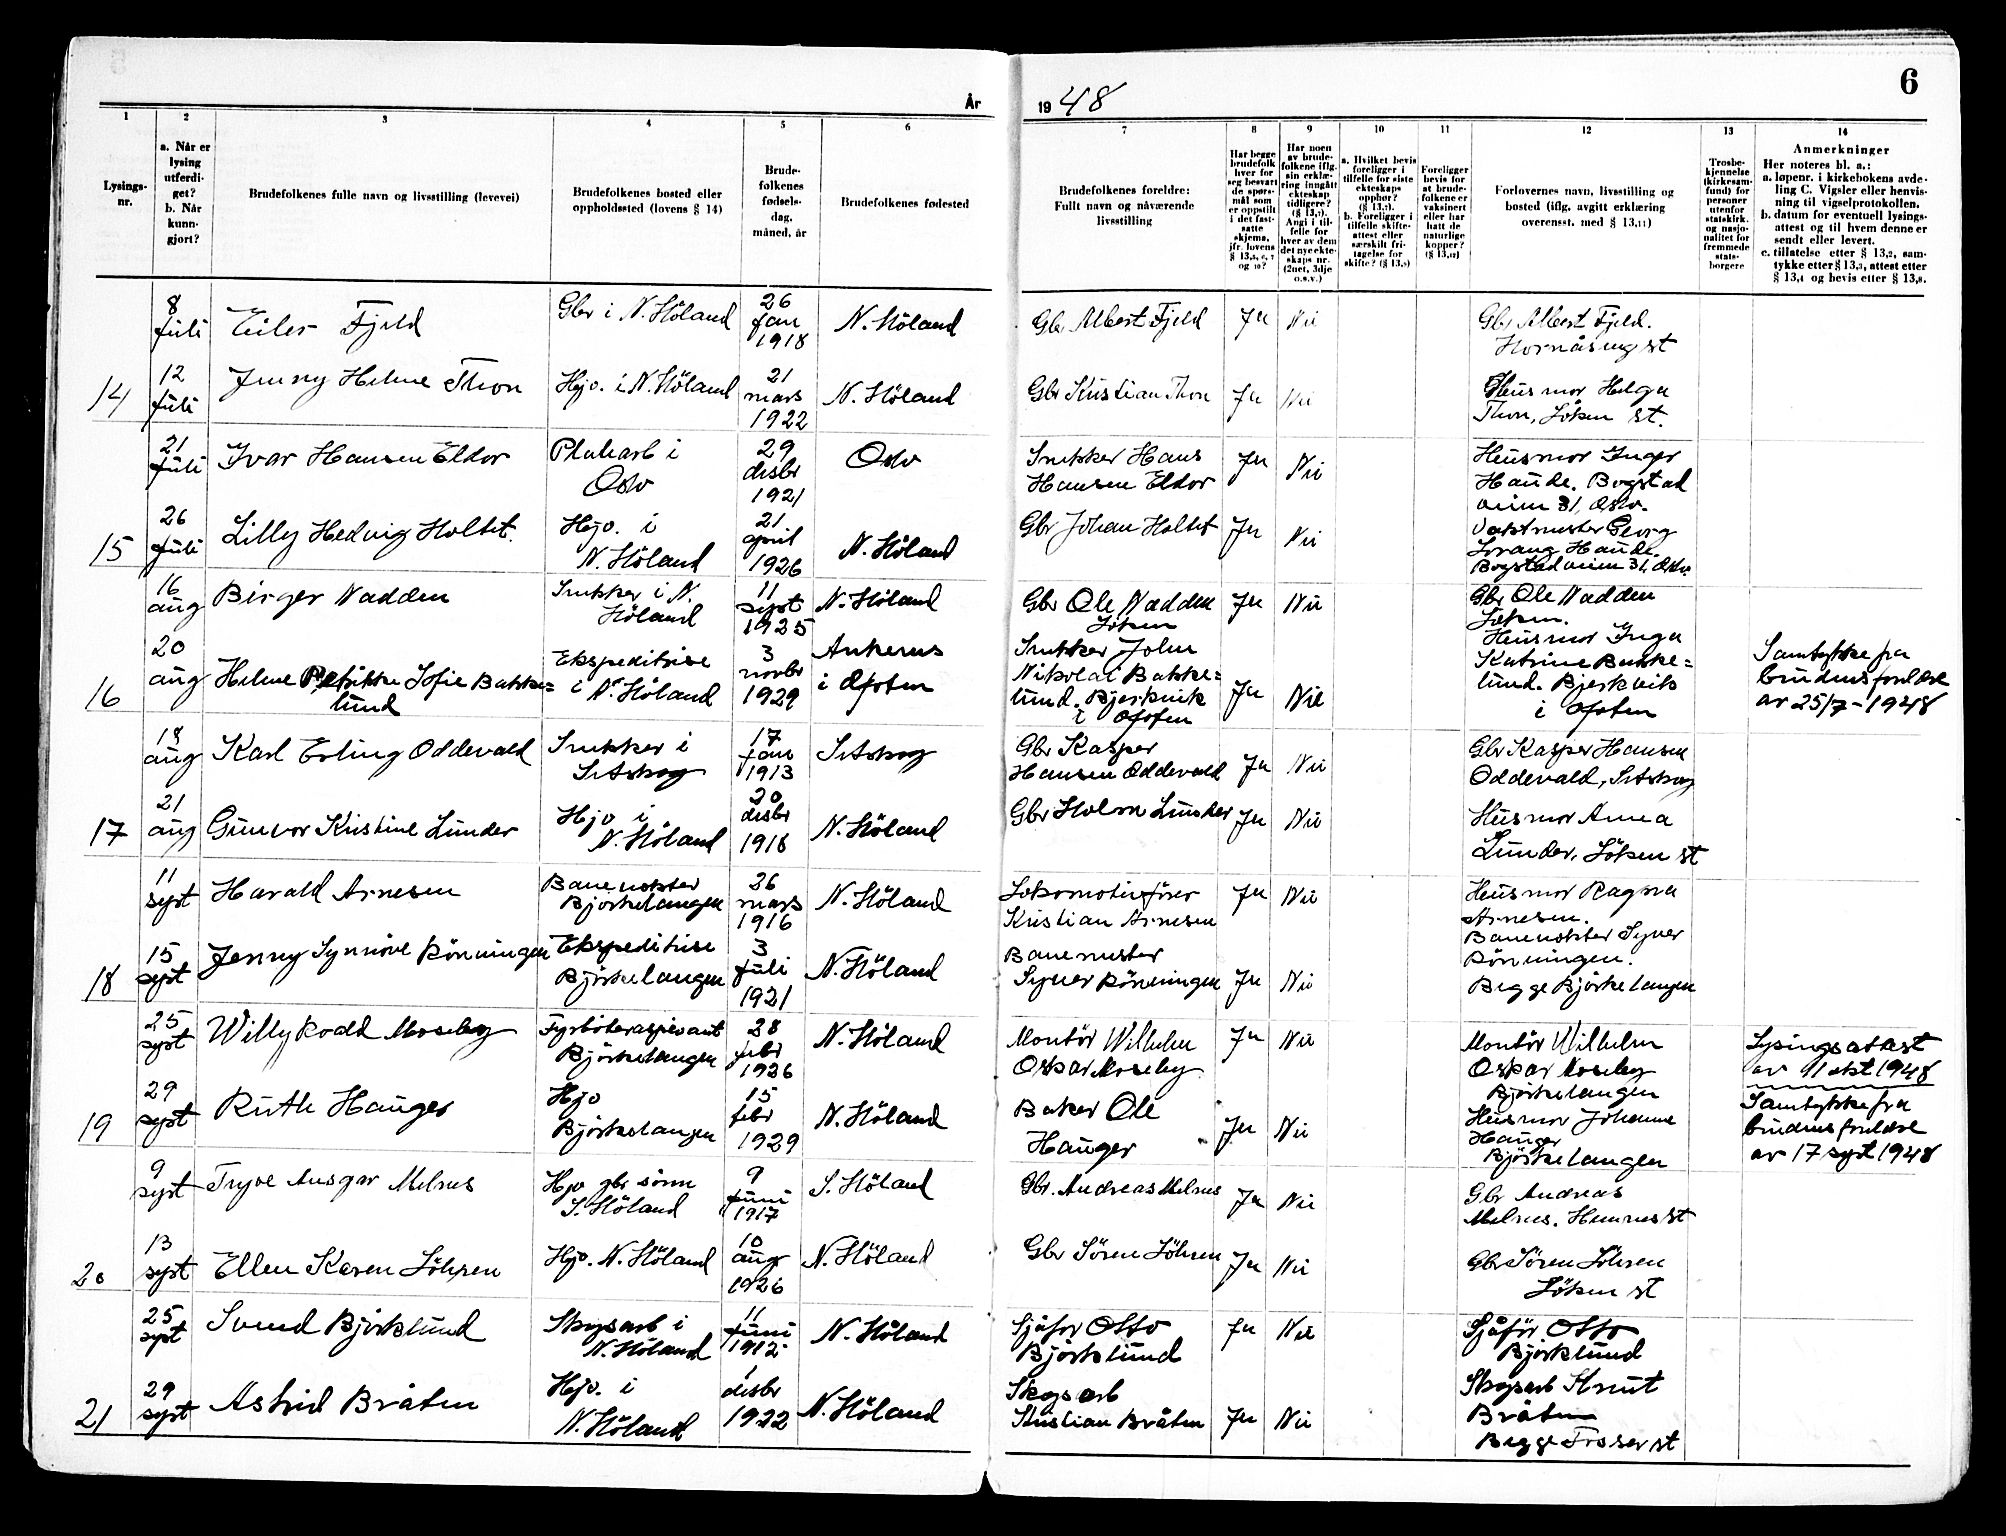 År
1948
6
1
2
3
4
5
6
7
8
9
10
11
12
13
14
Lysings-
nr.
a. Når er
lysing
utferdi-
get?
b. Når
kunn-
gjort?
Brudefolkenes fulle navn og livsstilling (levevei)
Brudefolkenes bosted eller
oppholdssted (lovens § 14)
Brude-
folkenes
fødsels-
dag,
måned, år
Brudefolkenes fødested
Brudefolkenes foreldre:
Fullt navn og nåværende
livsstilling
Har begge
brudefolk
hver for
seg besvart
de spørs-
mål som
er oppstilt
i det fast-
satte
skjema,
jfr. lovens
og 10?
Har noen
av brude-
folkene iflg.
sin erklæ-
ring inngått
ekteskap
tidligere?
Angi i til-
felle for
hver av dem
det nye ekte-
skaps nr.
(2net, 3dje
o.s.v.)
a. Hvilket bevis
foreligger i
tilfelle for siste
ekteskaps
opphør?
b. Foreligger i
tilfelle skifte-
attest eller
særskilt fri-
tagelse for
Foreligger
bevis for
at brude-
folkene er
vaksinert
eller har
hatt de
naturlige
kopper?
Forlovernes navn, livsstilling og
bosted (iflg. avgitt erklæring
overensst. med § 13,11)
Trosbe-
kjennelse
(kirkesam-
fund) for
personer
utenfor
statskirk.
og nasjo-
nalitet for
fremmede
stats-
borgere
Anmerkninger
Her noteres bl. a.:
a. løpenr. i kirkebokens avde-
ling C. Vigsler eller henvis-
ning til vigselprotokollen.
b. datum for eventuell lysings-
attest og til hvem denne er
sendt eller levert.
c. tillatelse etter § 13,2, sam-
tykke etter § 13,3, attest etter
§ 13,4 og bevis etter § 13,8.
8
Juli
Eiler Fjeld
Gbr i N. Höland
26
Jan
1918
N. Höland
Gbr Albert Fjeld
Ja
Nei
Gbr Albert Fjeld.
st
14
12
Juli
Jenny Helene Thon
Hjv. i N. Höland
21
mars
1922
N. Höland
Gbr Kristian Thon
Ja
Nei
Husmor Helga
Thon, Löken st.
21
Juli
Ivar Hansen Eldor
i
Oslo
29
desbr
1921
Oslo
Snekker Hans
Hansen Eldor
Ja
Nei
Husmor Inger
Haude. Bogstad
veien 31, Oslo.
15
26
Juli
Lilly Hedvig Holtet.
Hjv. i
N. Höland
21
april
1926
N. Höland
Gbr Johan Holtet
Ja
Nei
Vaktmester Georg
Haude.
Bogstadveien 31, Oslo.
16
aug
Birger Nadden
Snekker i N.
Höland
11
sept
1925
N. Höland
Gbr Ole Nadden
Löken
Ja
Nei
Gbr Ole Nadden
Löken.
16
20
aug
Helene Petrikke Sofie Bakke=
lund
Ekspeditrise
i N. Höland
3
novbr
1929
Ankenes
i Ofoten
Snekker John
Nikolai Bakke=
lund. Bjerkvik
i Ofoten
Ja
Nei
Husmor Inga
Katrine Bakke=
lund. Bjerkvik
i Ofoten
Samtykke fra
brudens foreldre
av 25/7-1948
18
aug
Karl Erling Oddevald
Snekker i
Setskog
17
Jan
1913
Setskog
Gbr Kasper
Hansen Oddevald
Ja
Nei
Gbr Kasper Hansen
Oddevald, Setskog
17
21
aug
Gunvor Kristine Lunder
Hjv i
N. Höland
20
desbr
1918
N. Höland
Gbr Holm Lunder
Ja
Nei
Husmor Anna
Lunder, Löken st
11
sept
Harald Arnesen
Banevokter
Björkelangen
26
mars
1916
N. Höland
Lokomotivförer
Kristian Arnesen
Ja
Nei
Husmor Ragna
Arnesen.
18
15
sept
Jenny Synnöve Rönningen
Ekspeditrise
Björkelangen
3
Juli
1921
N. Höland
Banemester
Syver Rönningen
Ja
Nei
Banevokter Syver
Rönningen.
Begge Björkelangen
25
sept
Willy Rodd Moseby
Fyrböteraspirant
Björkelangen
28
febr
1926
N. Höland
Montör Wilhelm
Oskar Moseby
Ja
Nei
Montör Wilhelm
Oskar Moseby
Björkelangen
Lysingsattest
av 11 okt 1948
19
29
sept
Ruth Hauger
Hjv
Björkelangen
15
febr
1929
N. Höland
Baker Ole
Hauger
Ja
Nei
Husmor Johanne
Hauger
Björkelangen
Samtykke fra
brudens foreldre
av 17 sept 1948
9
sept
Tryve Ansgar Melnes
Hjv gbr sönn
S. Höland
9
Juni
1917
S. Höland
Gbr. Andreas Melnes
Ja
Nei
Gbr Andreas
Melnes. Hemnes st
20
13
sept
Ellen Karen Löhren
Hjv. N. Höland
10
aug
1926
N. Höland
Gbr Sören Löhren
Ja
Nei
Gbr Sören Löhren
Löken st
25
sept
Svend Björklund
Skogsarb i
N. Höland
11
Juni
1912
N. Höland
Sjåför Otto
Björklund
Ja
Nei
Sjåför Otto
Björklund
21
29
sept
Astrid Bråten
Hjv. i
N. Höland
1
desbr
1922
N. Höland
Skogsarb
Kristian Bråten
Ja
Nei
Skogsarb Knut
Bråten
Begge Fosser st